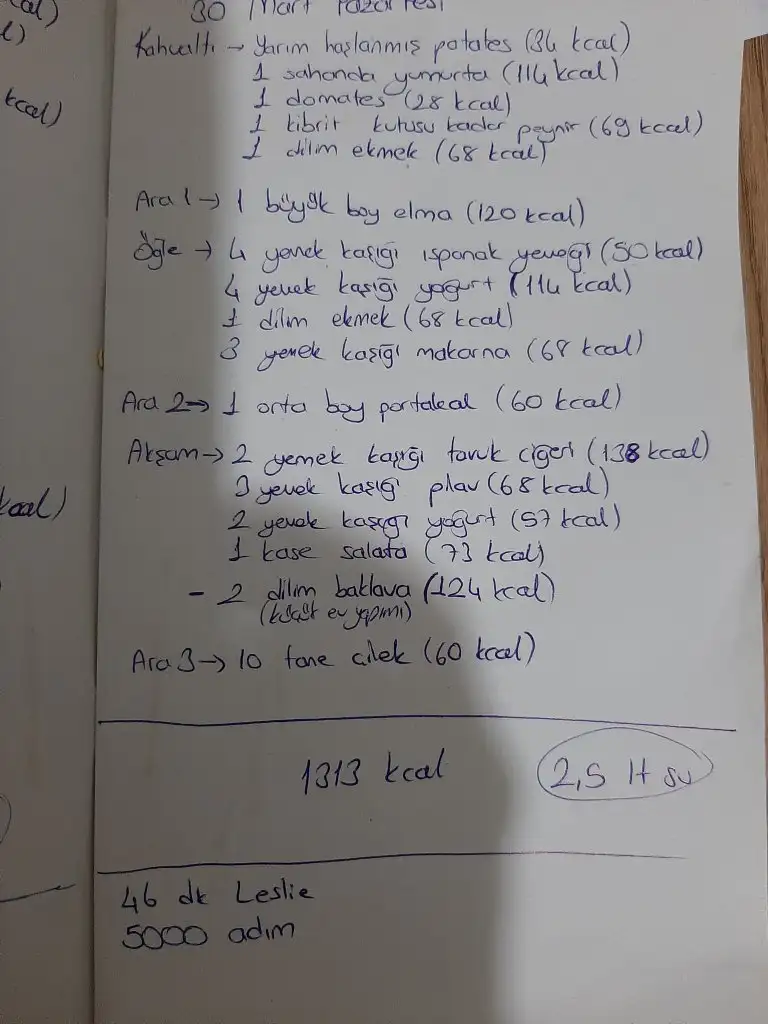 cal)
l)
kcal)
kcal)
30 Mart Pazartesi
Kahvaltı → Yarım haşlanmış patates (34 kcal)
1 sahanda yumurta (114 kcal)
1 domates (28 kcal)
1 kibrit kutusu kadar peynir (69 kcal)
1 dilim ekmek (68 kcal)
Ara 1 → 1 büyük boy elma (120 kcal)
Öğle → 4 yemek kaşığı ıspanak yemeği (50 kcal)
4 yemek kaşığı yoğurt (114 kcal)
1 dilim ekmek (68 kcal)
3 yemek kaşığı makarna (68 kcal)
Ara 2 → 1 orta boy portakal (60 kcal)
Akşam → 2 yemek kaşığı tavuk ciğeri (138 kcal)
3 yemek kaşığı pilav (68 kcal)
2 yemek kaşığı yoğurt (57 kcal)
1 kase salata (73 kcal)
- 2 dilim baklava (124 kcal)
(küçük ev yapımı)
Ara 3 → 10 tane çilek (60 kcal)
1313 kcal 2,5 lt su
46 dk Leslie
5000 adım